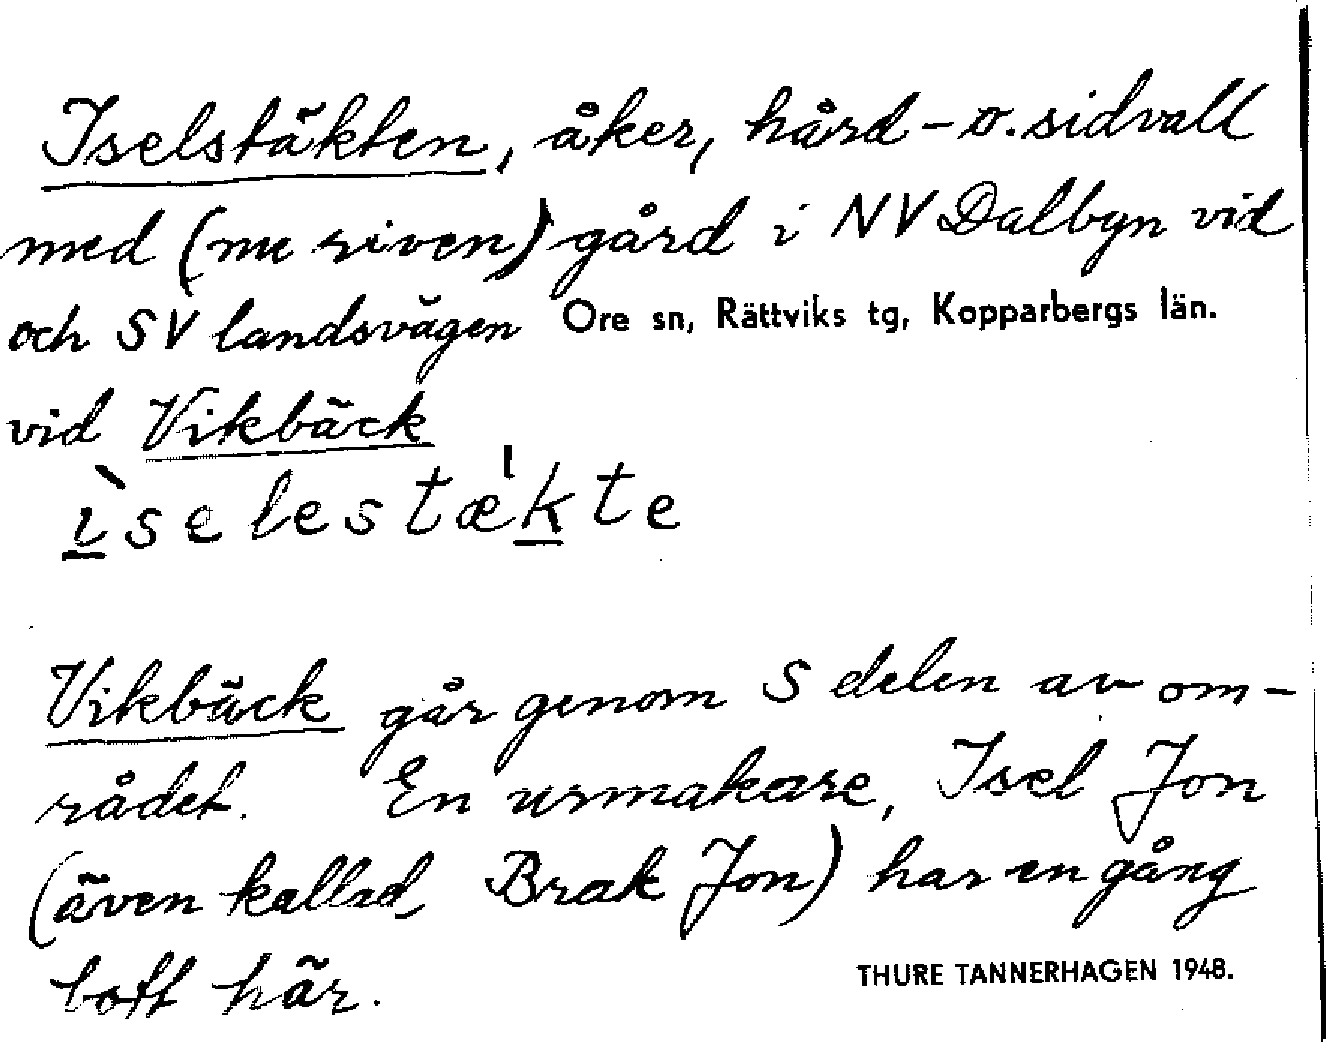 Iselstäkten, åker, hård- o. sidvall
med (nu riven) gård i NV Dalbyn vid
och SV landsvägen Ore sn, Rättviks tg, Kopparbergs län.
vid Vikbäck
ı̀selestæ̍kte
Vikbäck går genom S delen av om-
rådet. En urmakare, Isel Jon
(även kallad Brak Jon) har en gång
bott här.
THURE TANNERHAGEN 1948.